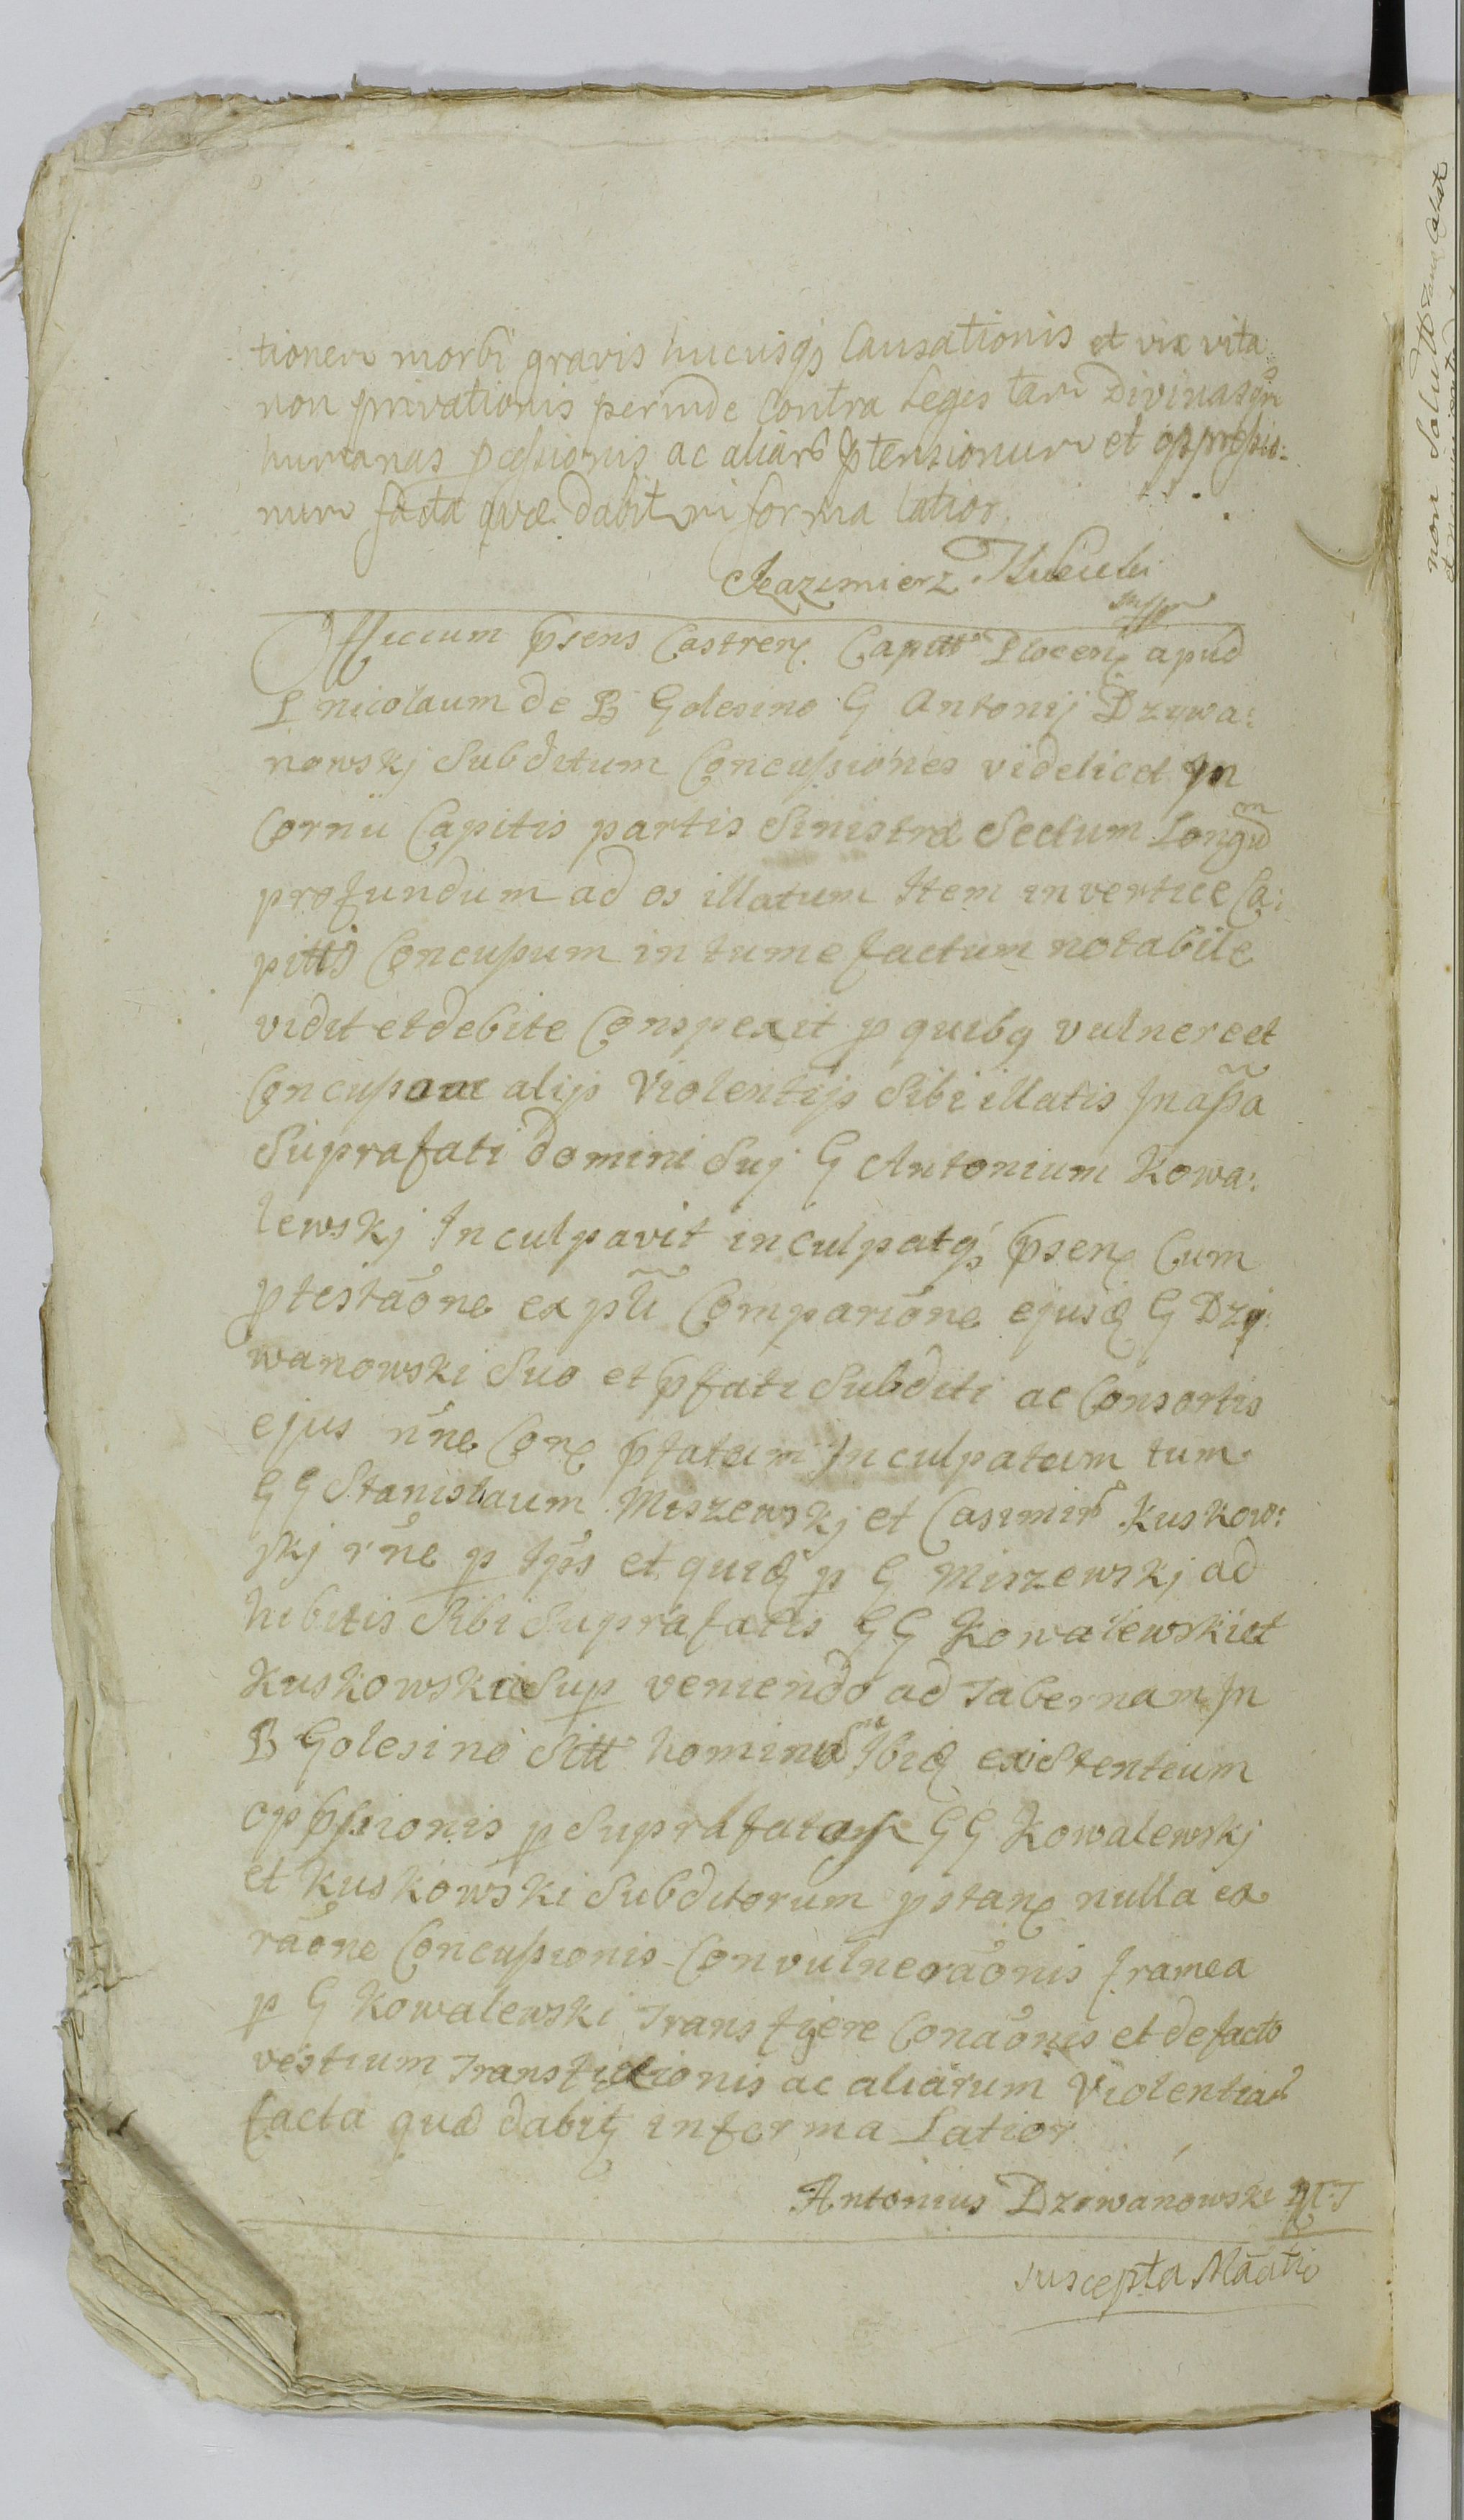 tionem morbi gravis hucusqꝫ Causationis et vix vita
non privationis perinde Contra Leges tam Divinas qm
humanas pcessionis ac aliarꝭ ptensionum et oppressio:
num facta quæ dabit in forma latior
Kazimierz
Officium psens Castren Capitt Plocen apud
L nicolaum de B Golesino G Antonij Dzywa:
nowskj Subditum Concussiones videlicet in
Cornu Capitis partis Sinistræ Sectum Longu m
profundum ad os illatum Item in vertice Ca:
pittis Concussum in tume factum notabile
vidit et debite Conspexit p quibq vulnere et
Concuss ac alijs Violentijs Sibi illatis In
Suprafati domini Suj G Antonium Kowa:
lewskj Inculpavit inculpatqꝫ psen Cum
ptestaõne ex pti Compariõne ejusd G Dzy:
wanowski Suo et pfati Subditi ac Consortis
ejus nñe Con pfatum Inculpatum tum
G G Stanislaum Miszewskj et Casimirꝭ Kuskow:
skj rñe p et quid p G Miszewskj ad
hibitis Sibi Suprafatis G G Kowalewski et
Kuskowski Sup veniendo ad Tabernam In
B Golesino Sitt hominu m Ibid existentium
oppssionis p Suprafatos G G Kowalewskj
et Kuskowski Subditorum pstan nulla ex
raõne Concussionis Convulneraõnis framea
p G Kowalewski Transfigere Conaõnis et de facto
vestium Transfictionis ac aliarum Violentiarꝭ
facta quæ dabit in forma Latior
Antonius Dziwanowski
suscepta